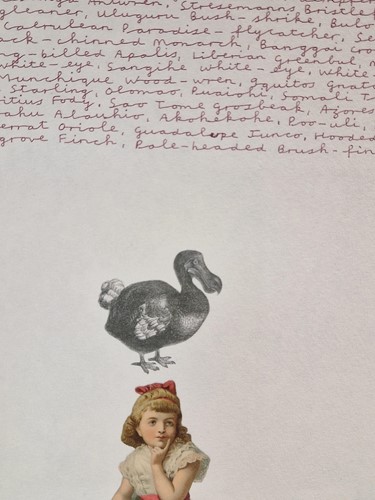 Antwren, Stresemann's Bristle
gleaner, Uluguru Bush-shrike, Bulo
Cerulean Paradise-flycatcher, Se
ck-chinned Monarch, Banggai cro
ng-billed Apalis, Liberian Greenbul, M
white-eye, Sangihe White-eye, White-
Munchique Wood-wren, Iquitos Gnatc
Starling, Olomao, Puaiohi, Somali T
itius Fody, Sao Tome Grosbeak, Azores
ahu Alauahio, Akohekohe, Poo-uli,
errat Oriole, Guadalupe Junco, Hooded
grove Finch, Pale-headed Brush-fin